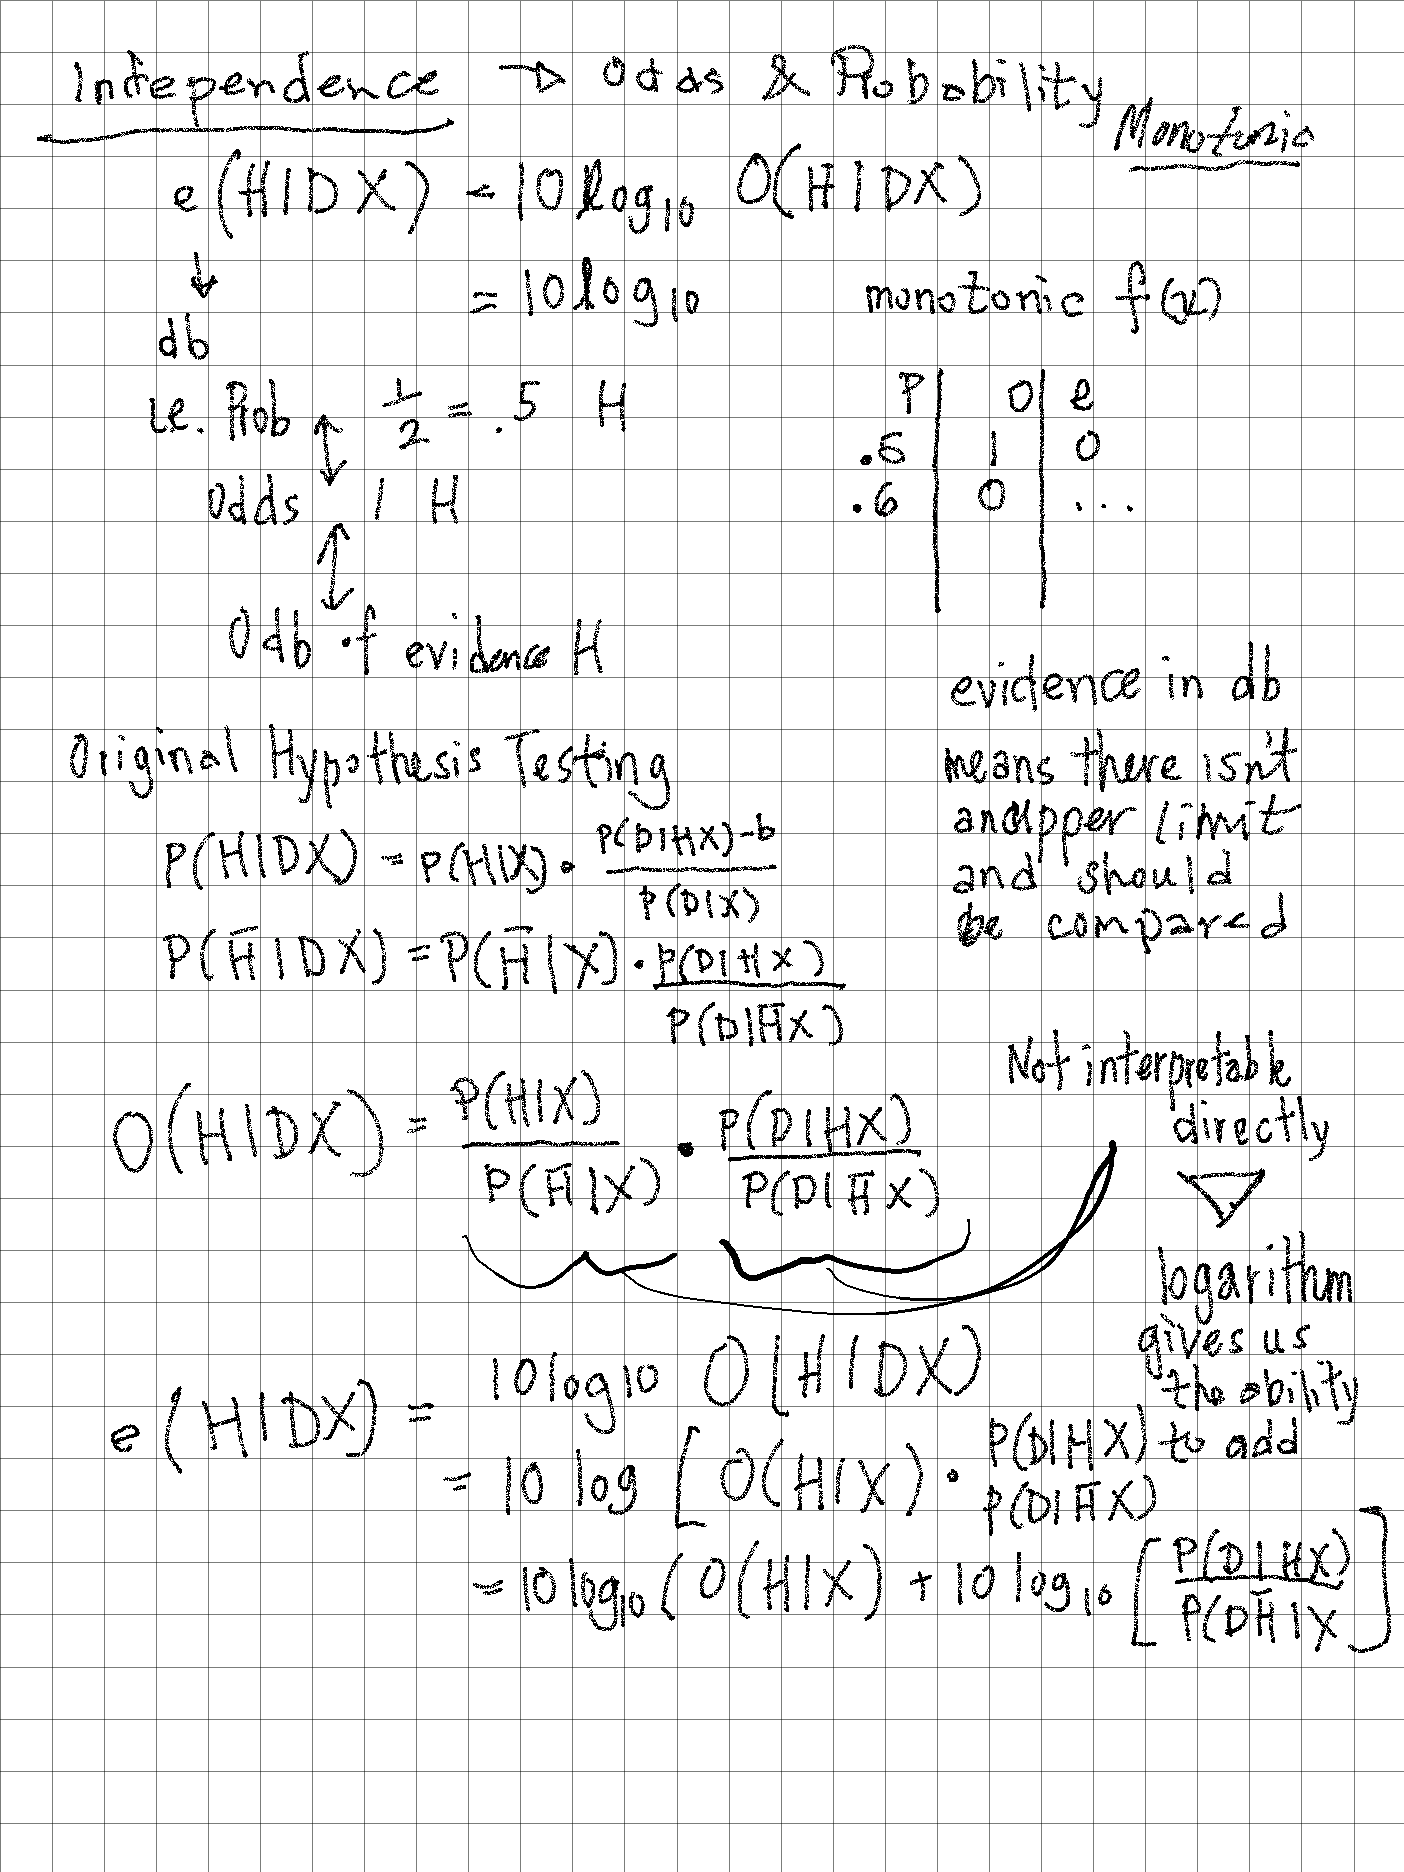 Independence → Odds & Probability
Monotonic
e(H|DX) = 10 log₁₀ O(H|DX)
↓ = 10 log₁₀ monotonic f(x)
db
i.e. Prob 1/2 = .5 H
Odds 1 H
0 db of evidence H
P | O | e
.5 | 1 | 0
.6 | 0 | ...
evidence in db
means there isn't
an upper limit
and should
be compared
Original Hypothesis Testing
P(H|DX) = P(H|X) · P(D|HX)-b / P(D|X)
P(H̄|DX) = P(H̄|X) · P(D|HX) / P(D|H̄X)
O(H|DX) = P(H|X) / P(H̄|X) · P(D|HX) / P(D|H̄X)
Not interpretable
directly
logarithm
gives us
the ability
to add
e(H|DX) = 10 log10 O(H|DX)
= 10 log [O(H|X) · P(D|HX) P(D|H̄X)
= 10 log₁₀ (O(H|X) + 10 log₁₀ [P(D|HX) / P(DH̄|X]